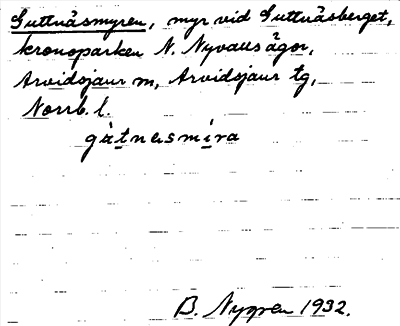 Guttnäsmyren, myr vid Guttnäsberget,
kronoparken N. Nyvalls ägor,
Arvidsjaur sn, Arvidsjaur tg,
Norrb. l.
gùtnesmíra
B. Nygren 1932.